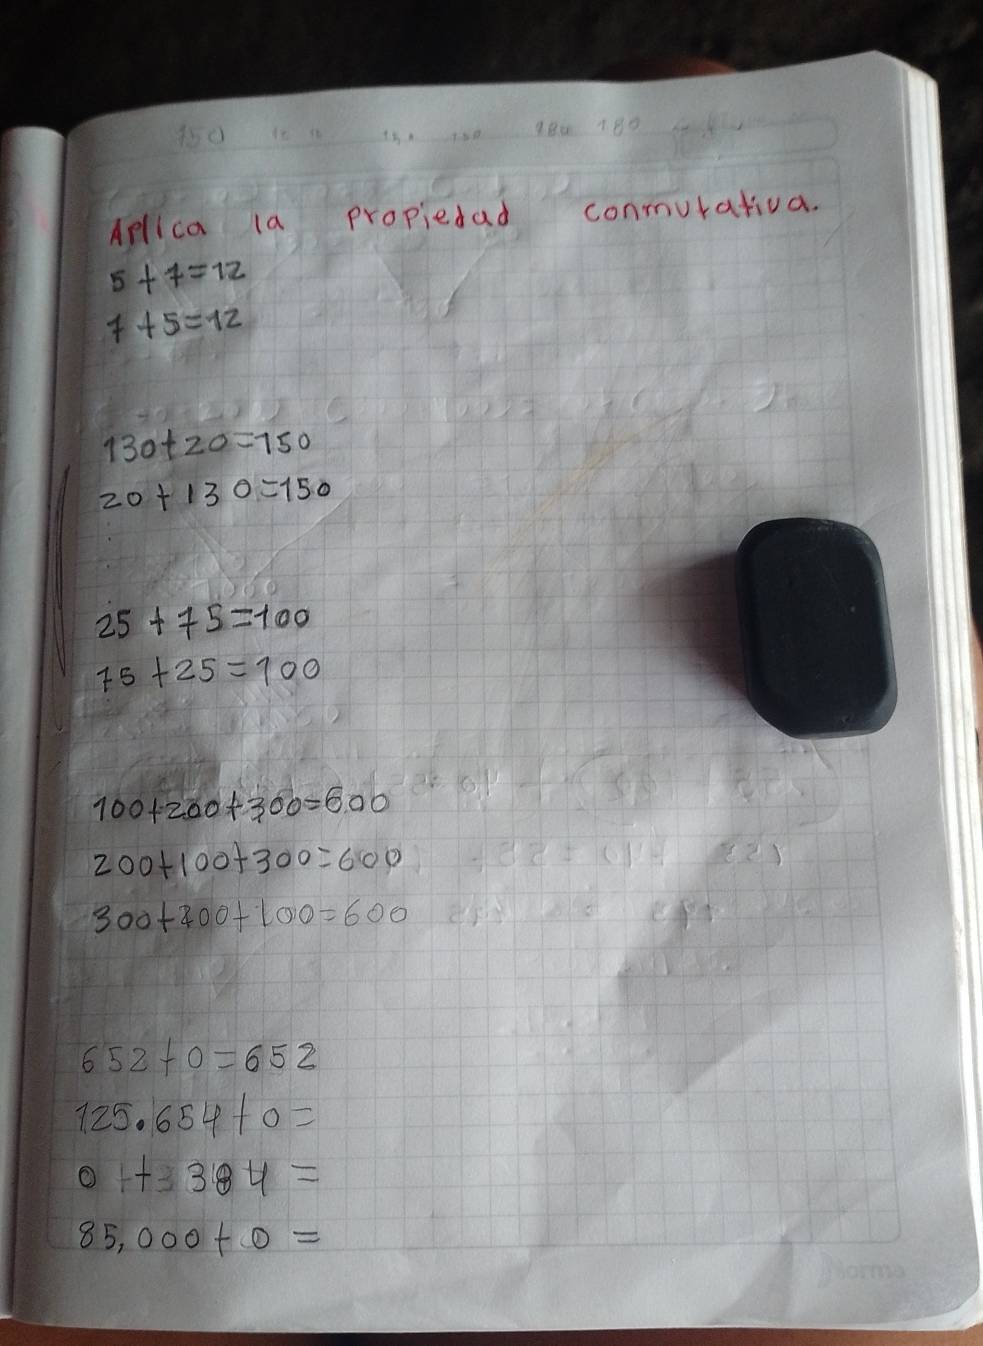 150 180 180
Aplica la propiedad conmutativa.
5+7=12
7+5=12
130+20=150
20+130=150
25+75=100
75+25=100
100+200+300=600
200+100+300=600
300+200+100=600
652+0=652
125.654+0=
0+384=
85,000+0=
Norma